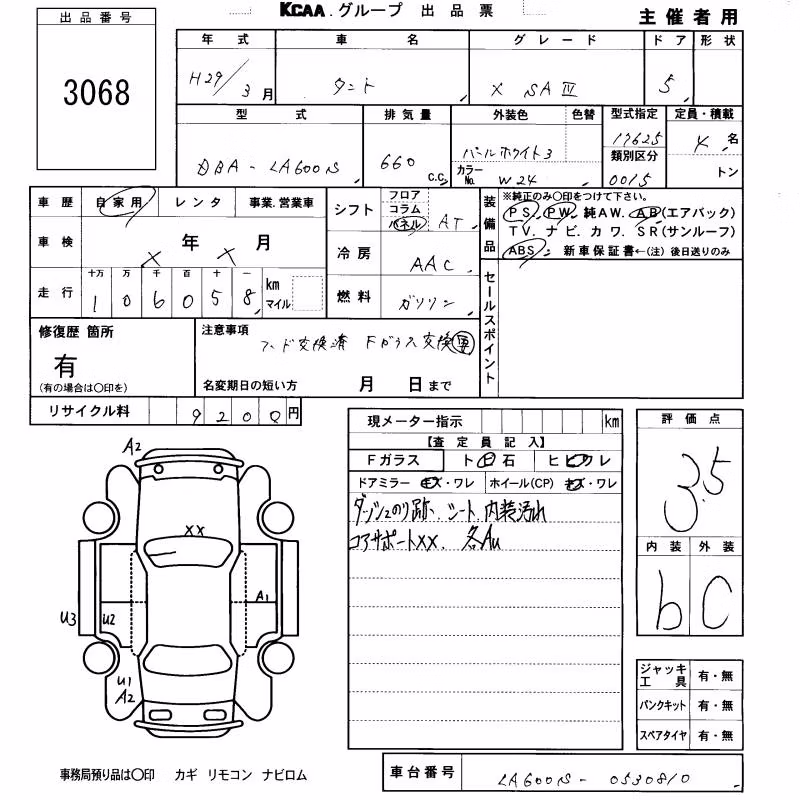 KCAA.グループ 出品票
主催者用
出品番号
3068
年式 車名 グレード ドア 形状
H29/3月 タント X SAⅢ 5
型式 排気量 外装色 色替 型式指定 定員・積載
DBA-LA600S 660 c.c. パールホワイト3 17625 4名
カラーNo. W24 類別区分 0015 トン
車歴 自家用 レンタ 事業.営業車
シフト フロア コラム パネル AT
装備品 ※純正のみ○印をつけて下さい。
PS. PW. 純AW. AB(エアバック)
TV. ナビ. カワ. SR(サンルーフ)
ABS. 新車保証書←(注)後日送りのみ
車検 X年X月
冷房 AAC
走行 十万 万 千 百 十 一
106058 km マイル
燃料 ガソリン
セールスポイント
修復歴 箇所
有
(有の場合は○印を)
注意事項
フード交換済 Fガラス交換
名変期日の短い方 月 日まで
リサイクル料 9200円
現メーター指示 km
【査定員記入】
Fガラス ト石 ヒワレ
ドアミラー キズ・ワレ ホイール(CP) キズ・ワレ
ダッシュのり跡、シート、内装汚れ
コアサポートXX. 各AU
評価点
3.5
内装 外装
b C
A2
XX
A1
U3 U2
U1
A2
ジャッキ工具 有・無
パンクキット 有・無
スペアタイヤ 有・無
事務局預り品は○印 カギ リモコン ナビロム
車台番号 LA600S-0530810